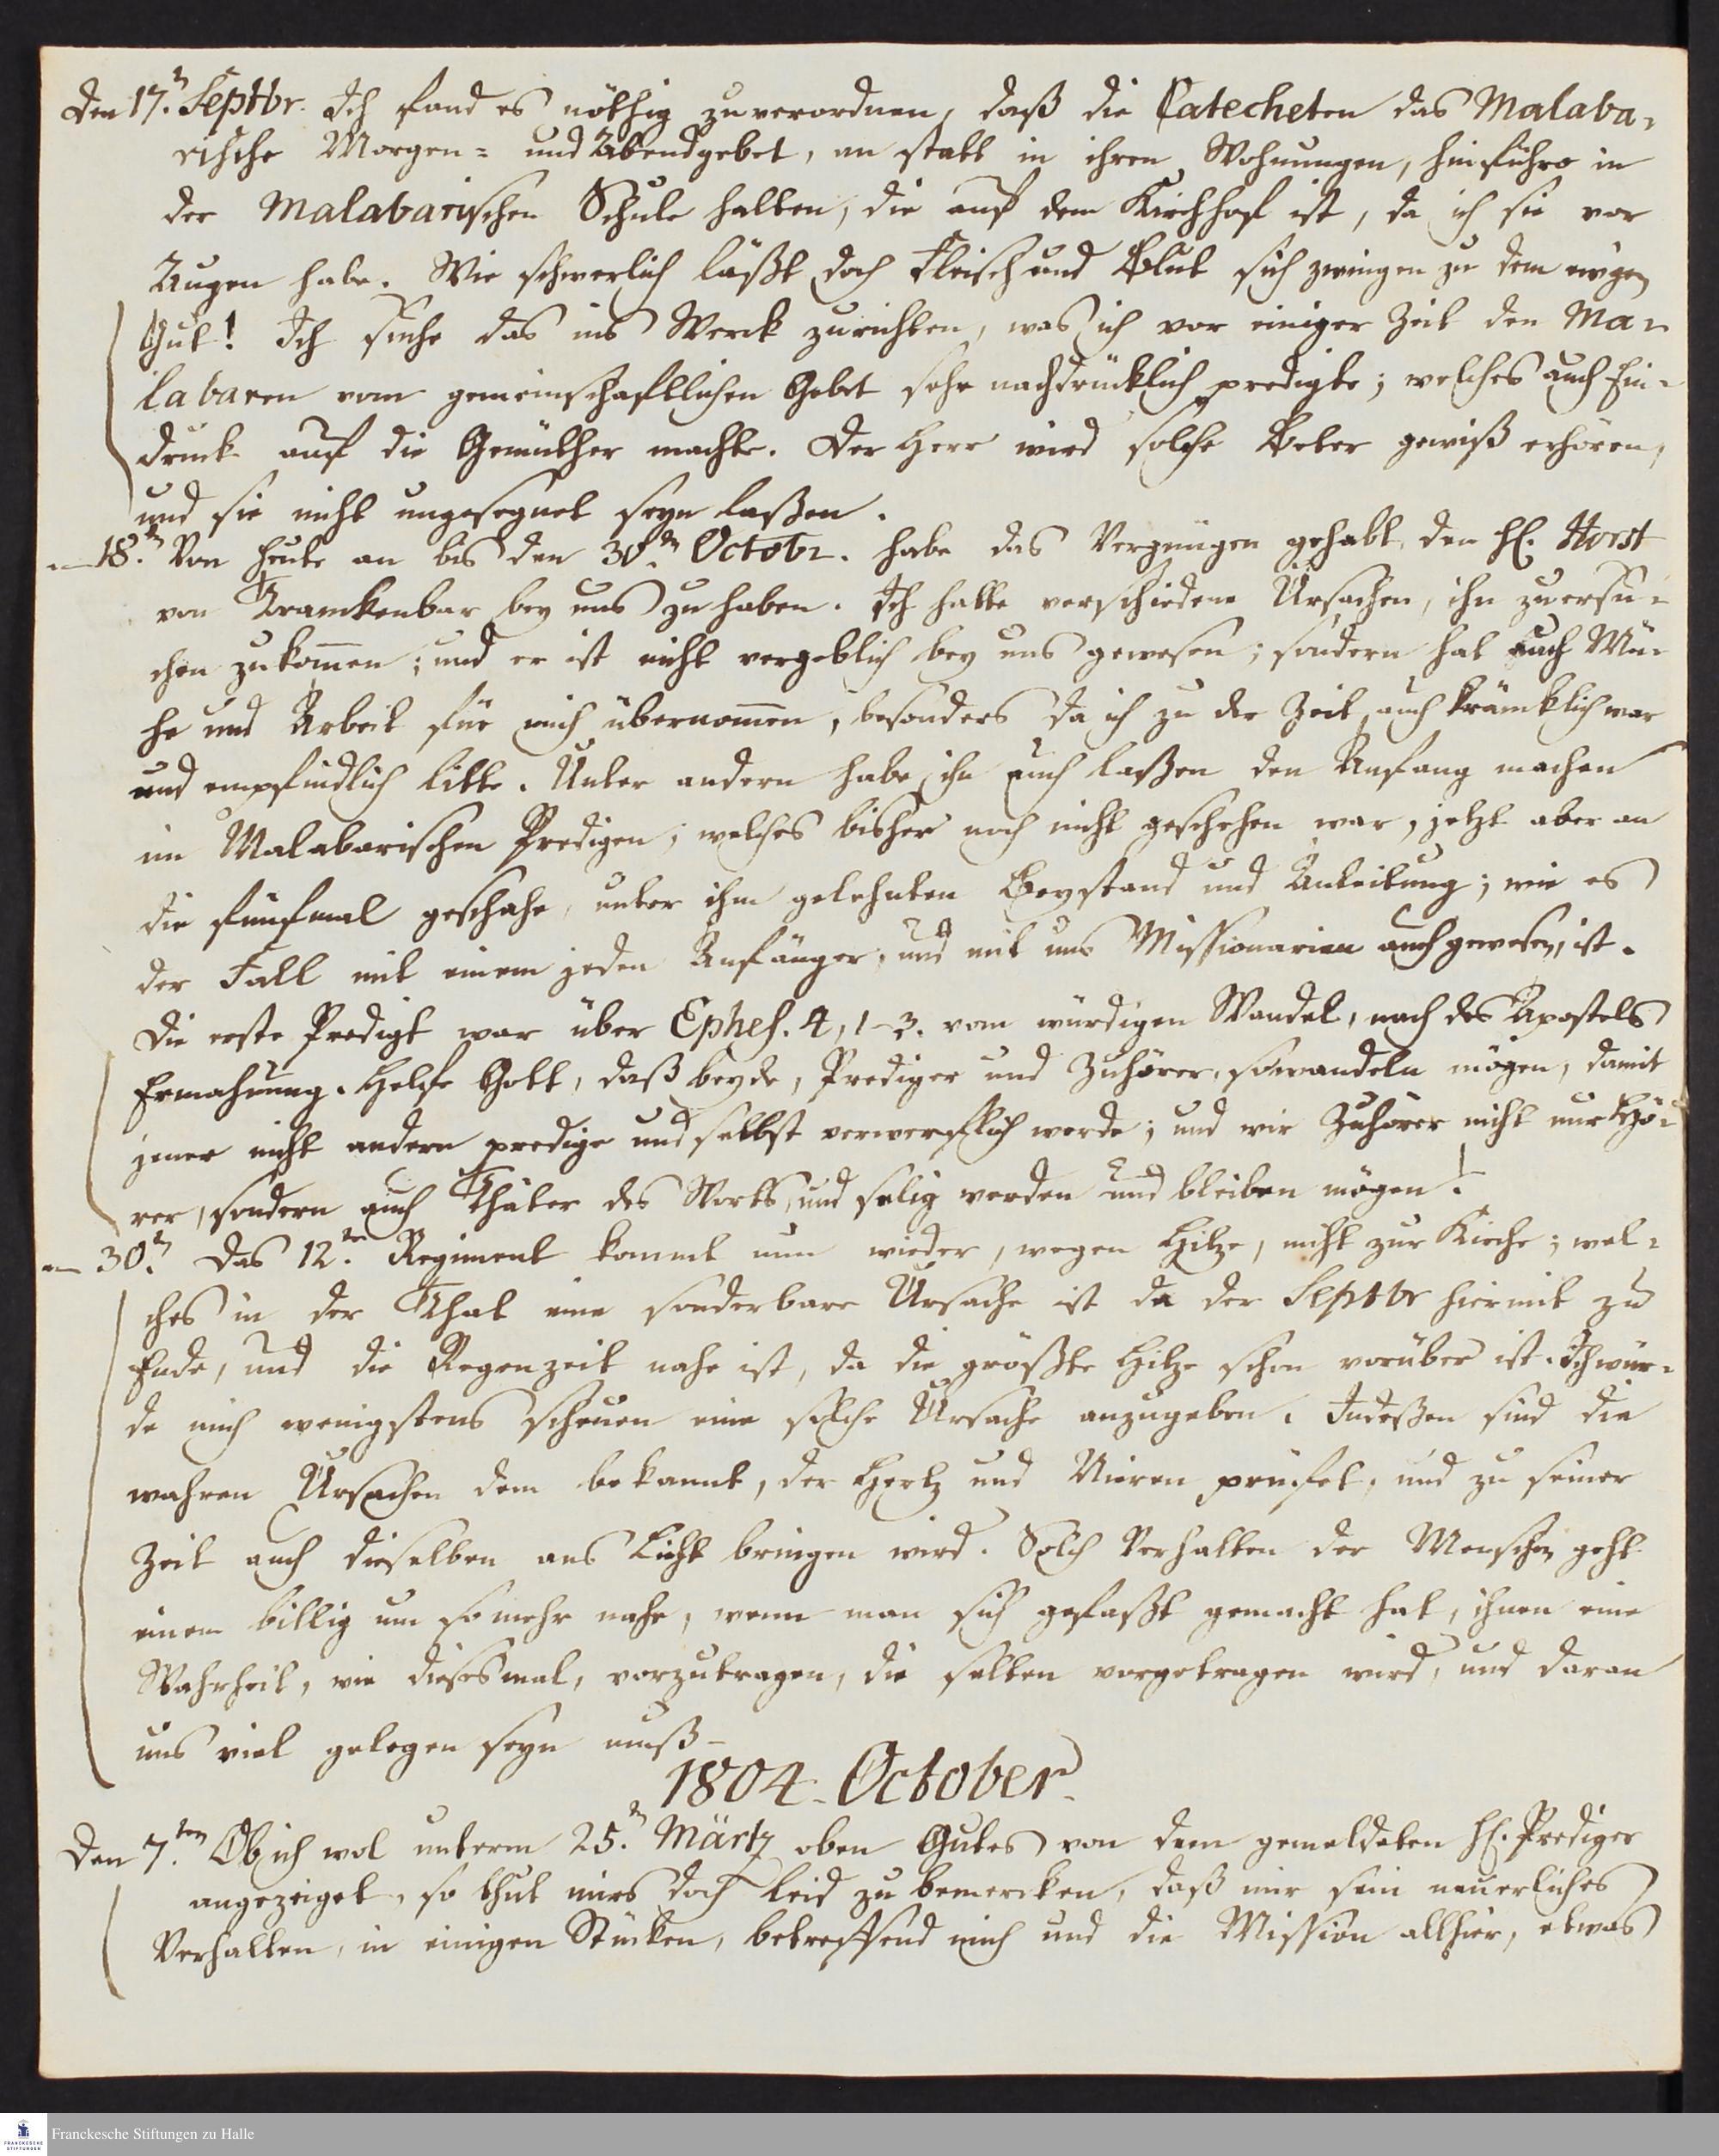 Den 17.n Septbr. Ich fand es nöthig zu verordnen, daß die Catecheten das Malaba-
rische Morgen- und Abendgebet, an statt in ihren Wohnungen, hinführo in
der Malabarischen Schule halten, die auf dem Kirchhof ist, da ich sie vor
Augen habe. Wie schwerlich läßt doch Fleisch und Blut sich zwingen zu dem ewgen
Gut! Ich suche das ins Werck zu richten, was ich vor einiger Zeit den Ma-
labaren vom gemeinschaftlichen Gebet sehr nachdrücklich predigte; welches auch Ein-
druck auf die Gemüther machte. Der Herr wird solche Beter gewiß erhören,
und sie nicht ungesegnet seyn laßen.
— 18.n Von heute an bis den 30.n Octobr. habe das Vergnügen gehabt, den H. Horst
von Tranckenbar bey uns zu haben. Ich hatte verschiedene Ursachen, ihn zu ersu-
chen zu kommen; und er ist nicht vergeblich bey uns gewesen; sondern hat auch Mü-
he und Arbeit für mich übernommen, besonders da ich zu der Zeit auch kräncklich war
und empfindlich litte. Unter andern habe ihn auch laßen den Anfang machen
im Malabarischen Predigen; welches bisher noch nicht geschehen war, jetzt aber an
die fünfmal geschahe, unter ihm gelehnten Beystand und Anleitung; wie es
der Fall mit einem jeden Anfänger, und mit uns Missionarien auch gewesen ist.
Die erste Predigt war über Ephes. 4, 1-3. vom würdigen Wandel, nach des Apostels
Ermahnung. Helfe Gott, daß beyde, Prediger und Zuhörer, so wandeln mögen, damit
jener nicht andern predige und selbst verwerflich werde; und wir Zuhörer nicht nur Hö-
rer, sondern auch Thäter des Worts, und selig werden und bleiben mögen!
— 30.n Das 12.te Regiment kommt nun wieder, wegen Hitze, nicht zur Kirche; wel-
ches in der That eine sonderbare Ursache ist da der Septbr hiermit zu
Ende, und die Regenzeit nahe ist, da die größte Hitze schon vorüber ist. Ich wür-
de mich wenigstens scheuen eine solche Ursache anzugeben. Indeßen sind die
wahren Ursachen dem bekannt, der Hertz und Nieren prüfet, und zu seiner
Zeit auch dieselben ans Licht bringen wird. Solch Verhalten der Menschen geht
einem billig um so mehr nahe, wenn man sich gefaßt gemacht hat, ihnen eine
Wahrheit, wie diesesmal, vorzutragen, die selten vorgetragen wird, und daran
uns viel gelegen seyn muß –
1804. October.
Den 7.ten Ob ich wol unterm 25.n Märtz oben Gutes von dem gemeldeten H. Prediger
angezeiget, so thut mirs doch leid zu bemercken, daß mir sein neuerliches
Verhalten, in einigen Stücken, betreffend mich und die Mission allhier, etwas
Franckesche Stiftungen zu Halle